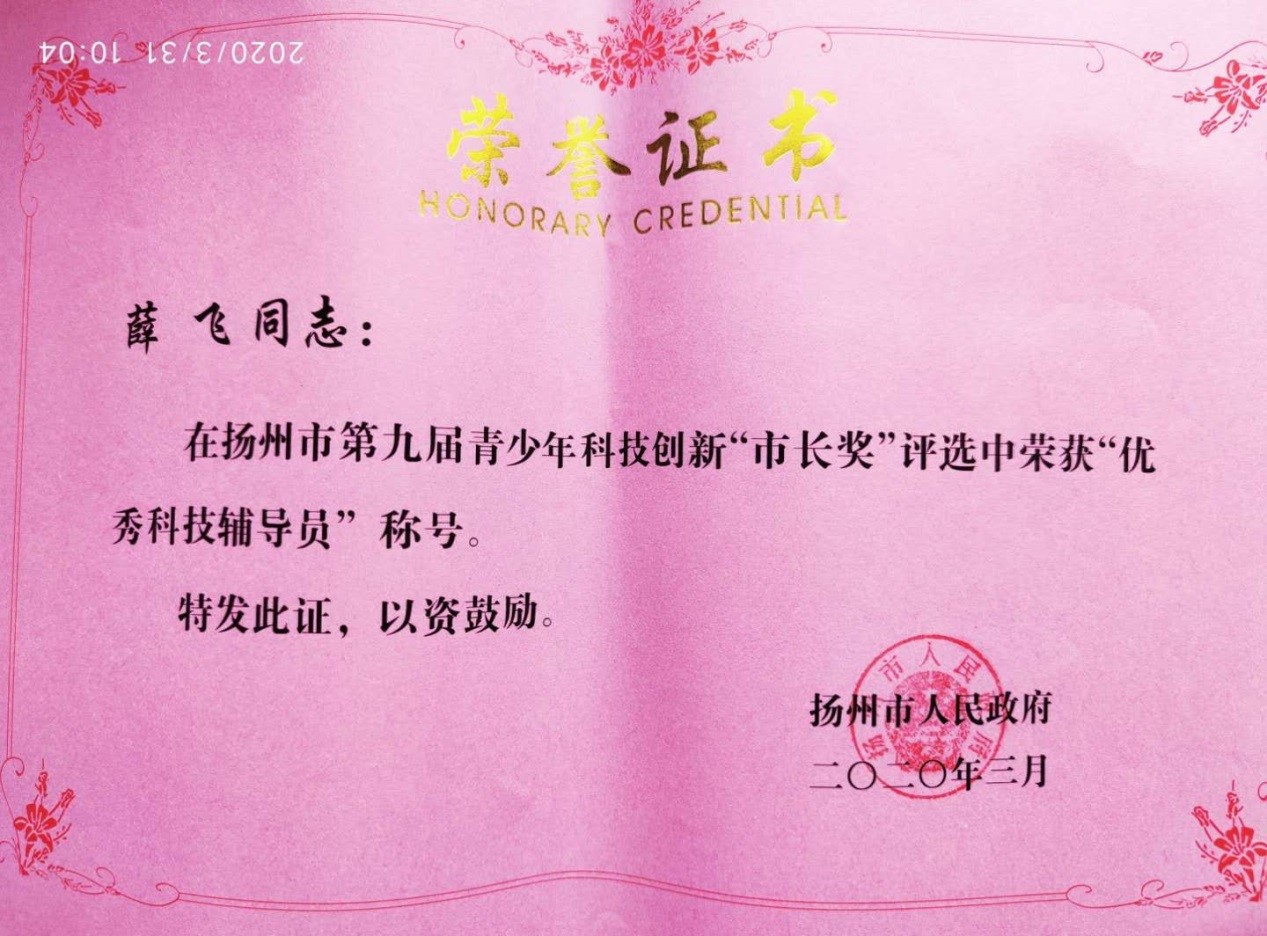 2020/3/31 10:04
荣誉证书
HONORARY CREDENTIAL
薛 飞同志：
在扬州市第九届青少年科技创新“市长奖”评选中荣获“优
秀科技辅导员” 称号。
特发此证，以资鼓励。
扬州市人民政府
扬州市人民政府
二〇二〇年三月